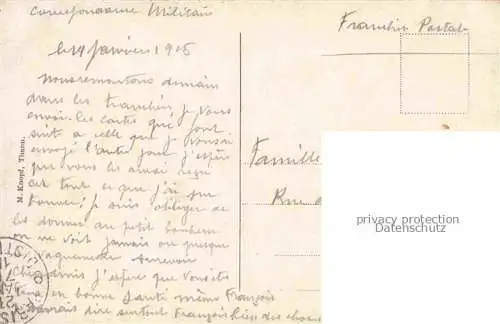 Correspondance Militaire
Franchise Postale
le 14 Janvier 1915
Nous remontons demain
dans les tranchées, je vous
envoie les cartes que font
suite a celle que je vous ai
envoyé l'autre jour j'espère
que vous les ainsi reçu
cet tout ce que j'ai
je suis obliger de
les donner au petit bonheur
on ne voit jamais ou presque
vaguemestre aurevoir
Chers amis j'espère que vous êtes
tous en bonne Santé même François
dire surtout François bien des choses
Famille
Rue
M. Knopf, Thann.
privacy protection
Datenschutz